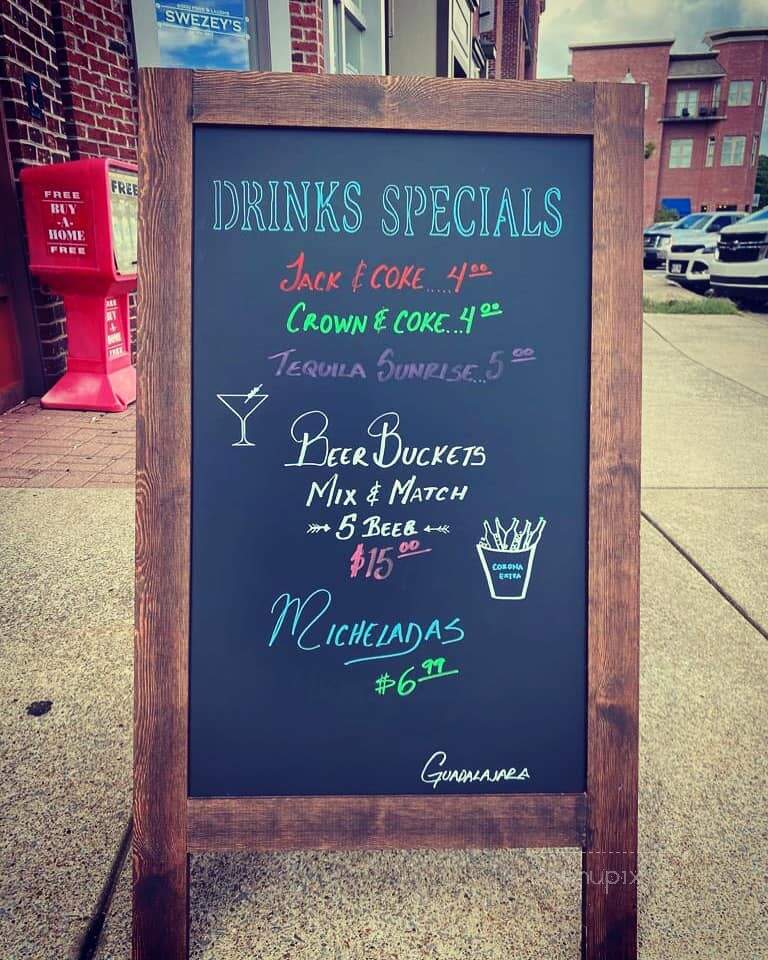 SWEZEY'S
FREE
BUY
-A-
HOME
FREE
FREE
BUY
-A-
HOME
FREE
DRINKS SPECIALS
JACK & COKE.....4⁰⁰
CROWN & COKE...4⁰⁰
TEQUILA SUNRISE...5⁰⁰
BEER BUCKETS
MIX & MATCH
5 BEER
$15⁰⁰
CORONA
EXTRA
MICHELADAS
$6⁹⁹
GUADALAJARA